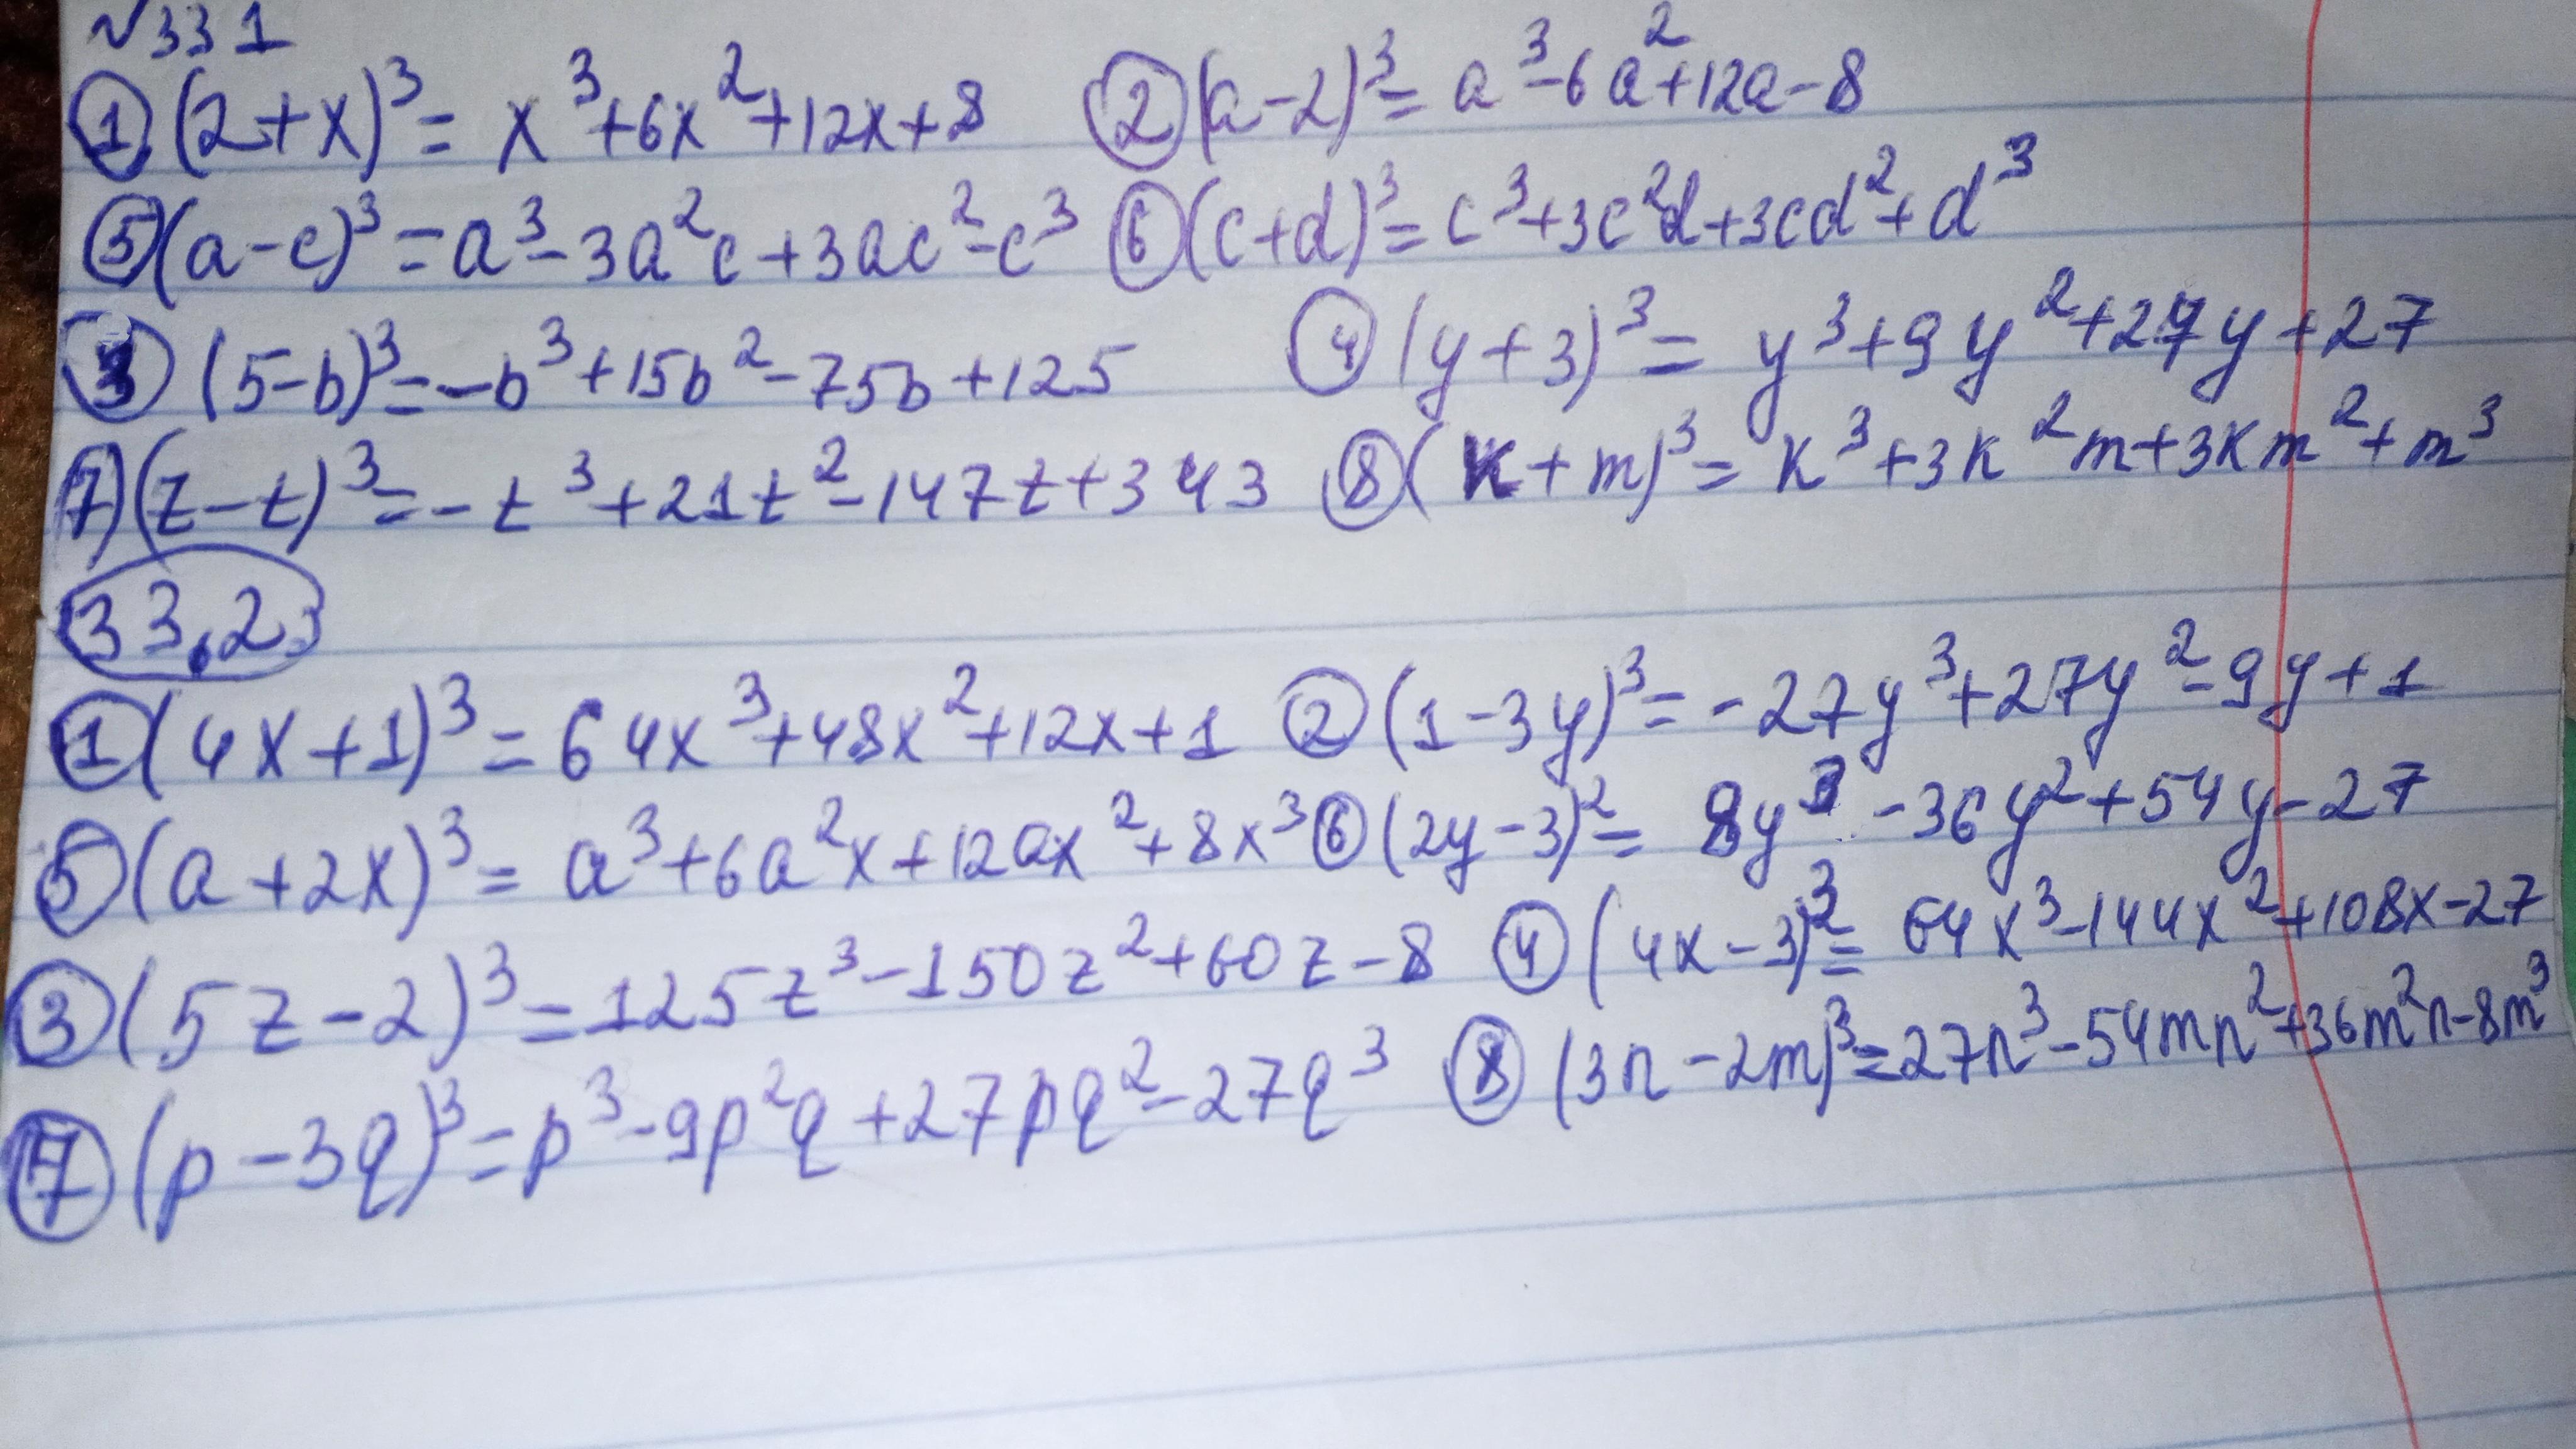 №331
① (2+x)³ = x³+6x²+12x+8 ② (a-2)³ = a³-6a²+12a-8
⑤ (a-c)³ = a³-3a²c+3ac²-c³ ⑥ (c+d)³ = c³+3c²d+3cd²+d³
③ (5-b)³ = -b³+15b²-75b+125 ④ (y+3)³ = y³+9y²+27y+27
⑦ (z-t)³ = -t³+21t²-147t+343 ⑧ (k+m)³ = k³+3k²m+3km²+m³
33.2
① (4x+1)³ = 64x³+48x²+12x+1 ② (1-3y)³ = -27y³+27y²-9y+1
⑤ (a+2x)³ = a³+6a²x+12ax²+8x³ ⑥ (2y-3)² = 8y³-36y²+54y-27
③ (5z-2)³ = 125z³-150z²+60z-8 ④ (4x-3)³ = 64x³-144x²+108x-27
⑦ (p-3q)³ = p³-9p²q+27pq²-27q³ ⑧ (3n-2m)³ = 27n³-54mn²+36m²n-8m³